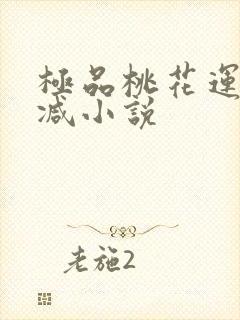 極品桃花運
减小說
老施2